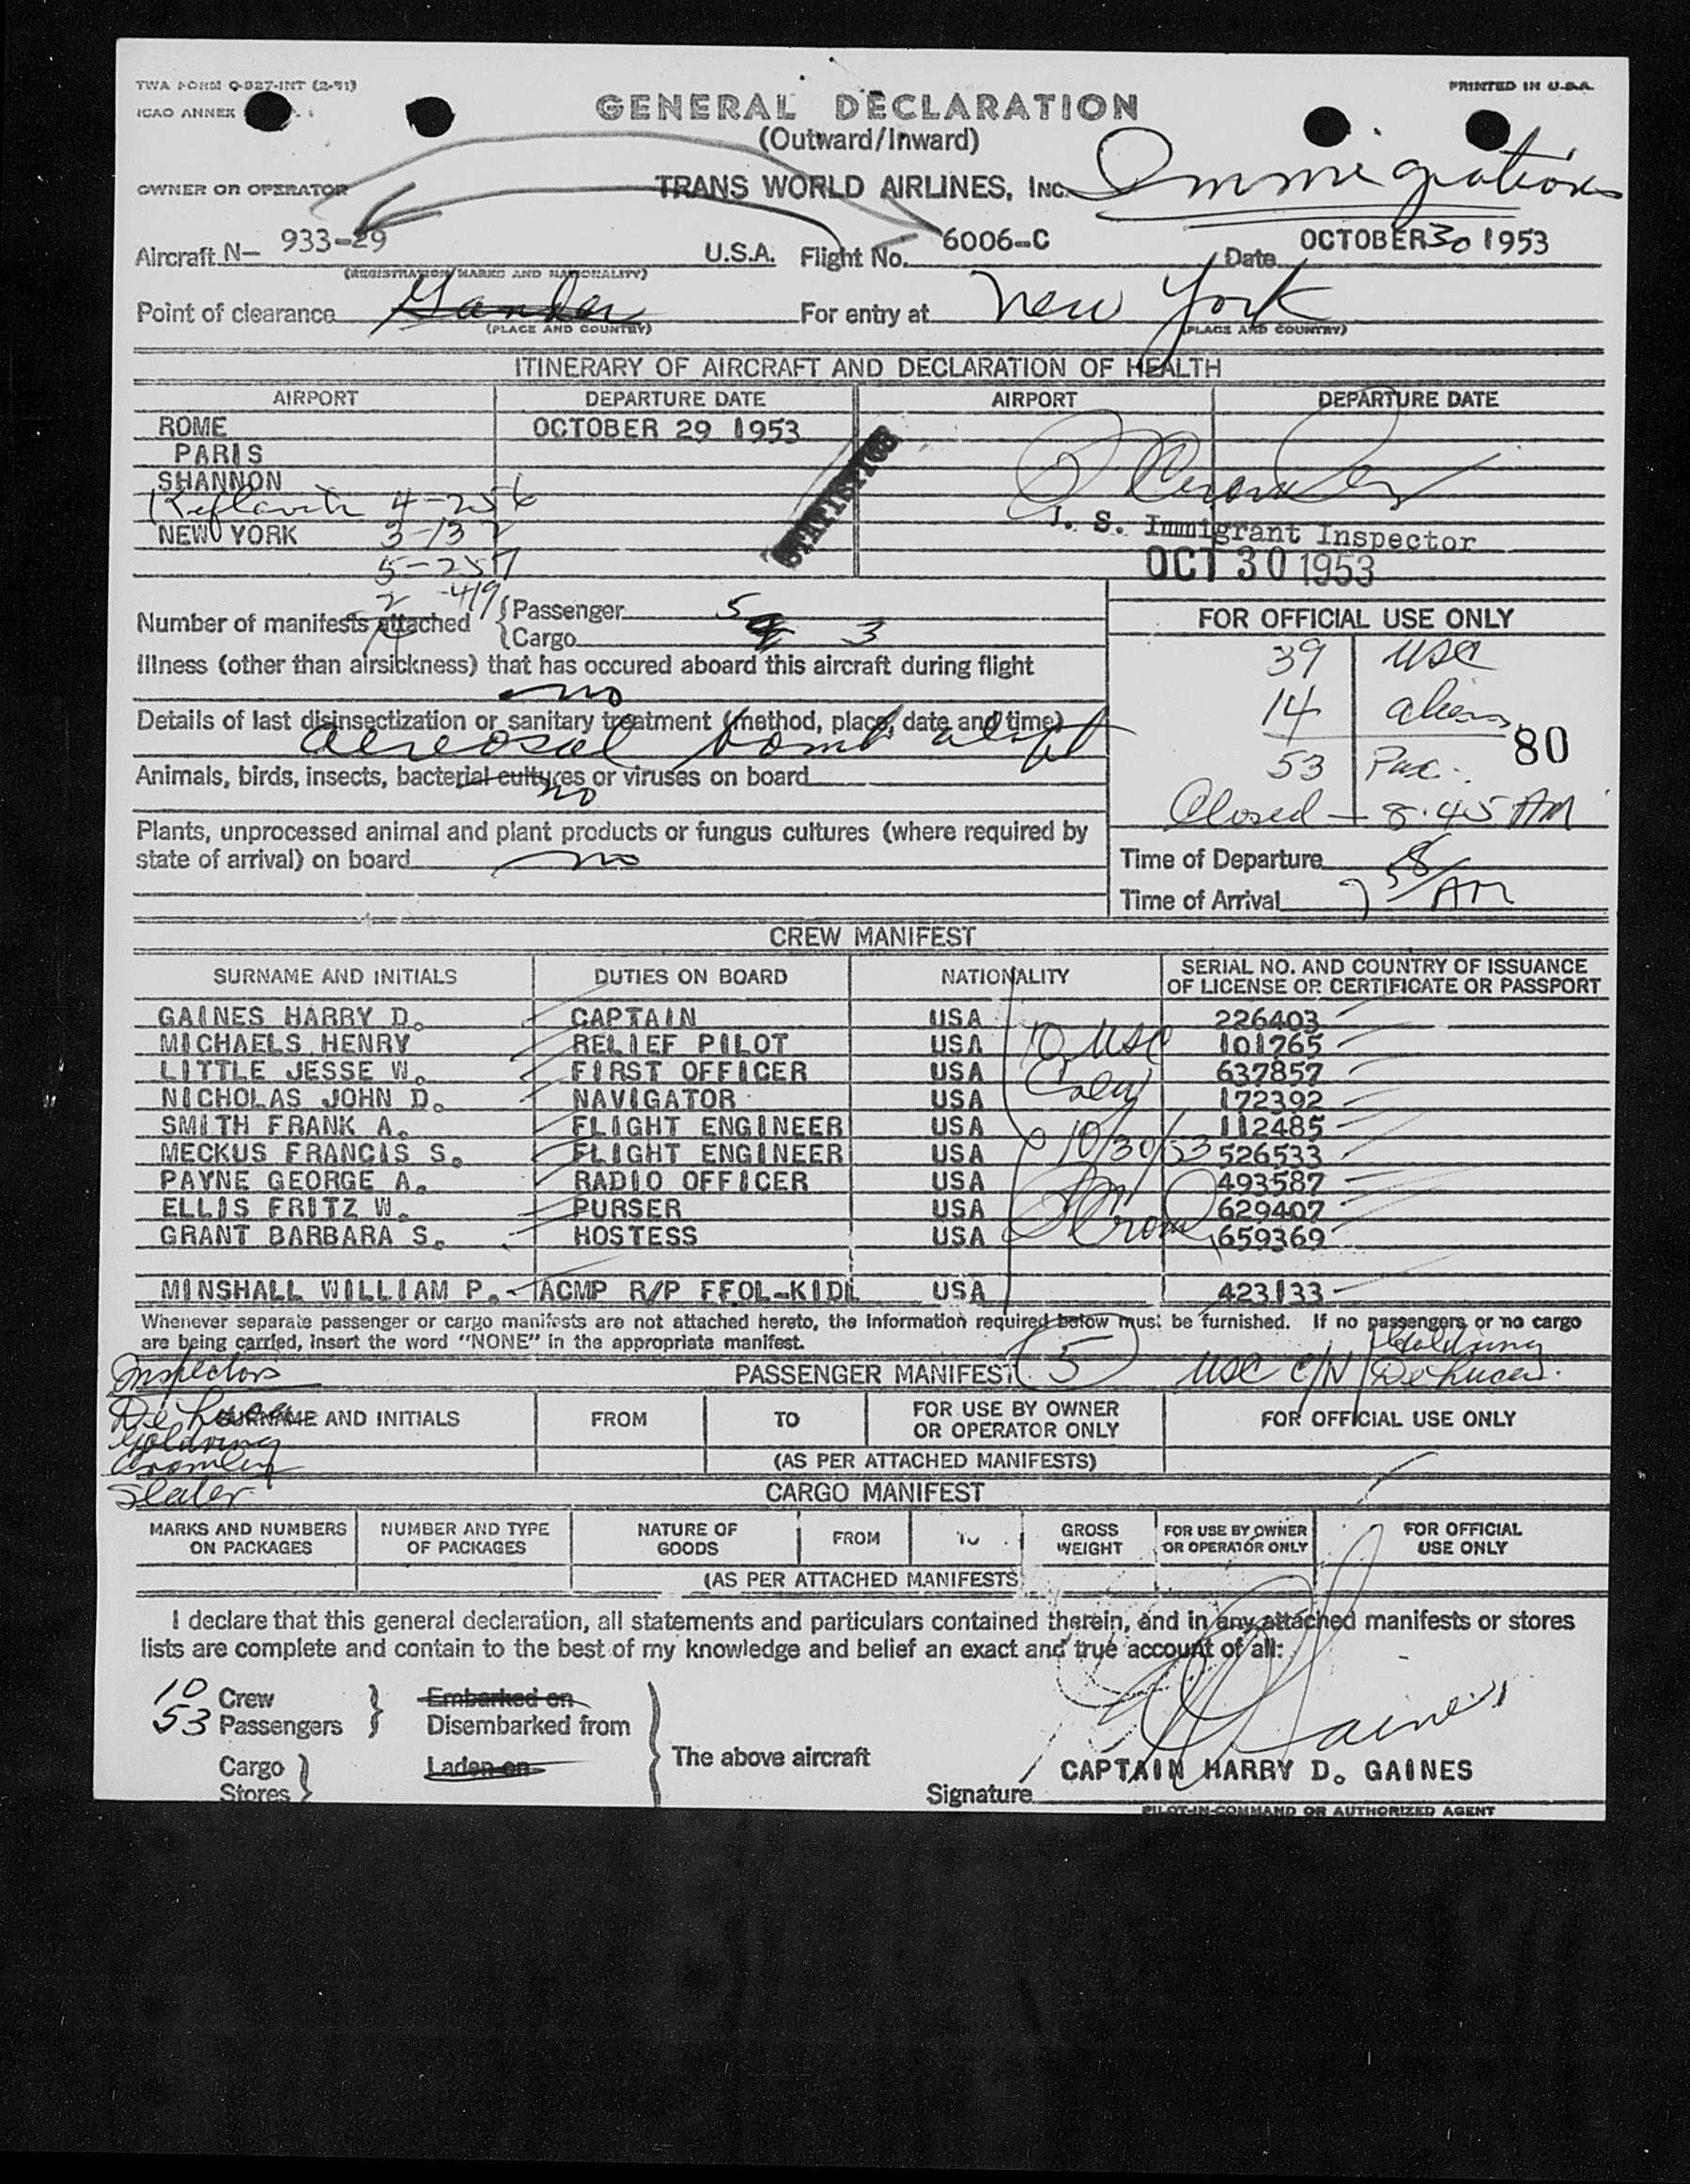 TWA FORM O-927-INT (2-51)
PRINTED IN U.S.A.
ICAO ANNEX
GENERAL DECLARATION
(Outward/Inward)
Immigrations
OWNER OR OPERATOR TRANS WORLD AIRLINES, INC.
Aircraft N- 933-29 U.S.A. Flight No. 6006-C Date OCTOBER 30 1953
(REGISTRATION MARKS AND NATIONALITY)
Point of clearance Gander For entry at New York
(PLACE AND COUNTRY) (PLACE AND COUNTRY)
ITINERARY OF AIRCRAFT AND DECLARATION OF HEALTH
AIRPORT DEPARTURE DATE AIRPORT DEPARTURE DATE
ROME OCTOBER 29 1953
PARIS
SHANNON
Keflavik 4-256
NEW YORK 3-132
5-257
2-419
STATISTICS
U. S. Immigrant Inspector
OCT 30 1953
Number of manifests attached { Passenger 5
{ Cargo 3
Illness (other than airsickness) that has occured aboard this aircraft during flight
no
Details of last disinsectization or sanitary treatment (method, place, date and time)
aereosal bomb
Animals, birds, insects, bacterial cultures or viruses on board
no
Plants, unprocessed animal and plant products or fungus cultures (where required by
state of arrival) on board no
FOR OFFICIAL USE ONLY
39 USC
14 aliens
80
53 Pax.
Closed - 8:45 AM
Time of Departure
Time of Arrival 7 58 AM
CREW MANIFEST
SURNAME AND INITIALS DUTIES ON BOARD NATIONALITY SERIAL NO. AND COUNTRY OF ISSUANCE
OF LICENSE OR CERTIFICATE OR PASSPORT
GAINES HARRY D. CAPTAIN USA 226403
MICHAELS HENRY RELIEF PILOT USA 101765
LITTLE JESSE W. FIRST OFFICER USA 637857
NICHOLAS JOHN D. NAVIGATOR USA 172392
SMITH FRANK A. FLIGHT ENGINEER USA 112485
MECKUS FRANCIS S. FLIGHT ENGINEER USA 526533
PAYNE GEORGE A. RADIO OFFICER USA 493587
ELLIS FRITZ W. PURSER USA 629407
GRANT BARBARA S. HOSTESS USA 659369
MINSHALL WILLIAM P. ACMP R/P FFOL-KIDL USA 423133
10 USC
Crew
10/30/53
Whenever separate passenger or cargo manifests are not attached hereto, the information required below must be furnished. If no passengers or no cargo
are being carried, insert the word "NONE" in the appropriate manifest.
Goldring
Inspectors PASSENGER MANIFEST 5 USC C/N DeLuca
DeLuca
SURNAME AND INITIALS FROM TO FOR USE BY OWNER
OR OPERATOR ONLY FOR OFFICIAL USE ONLY
Goldring
Cromley (AS PER ATTACHED MANIFESTS)
Slater CARGO MANIFEST
MARKS AND NUMBERS
ON PACKAGES NUMBER AND TYPE
OF PACKAGES NATURE OF
GOODS FROM TO GROSS
WEIGHT FOR USE BY OWNER
OR OPERATOR ONLY FOR OFFICIAL
USE ONLY
(AS PER ATTACHED MANIFESTS
I declare that this general declaration, all statements and particulars contained therein, and in any attached manifests or stores
lists are complete and contain to the best of my knowledge and belief an exact and true account of all:
10 Crew Embarked on
53 Passengers Disembarked from
Cargo Laden on The above aircraft
Stores
CAPTAIN HARRY D. GAINES
Signature
PILOT-IN-COMMAND OR AUTHORIZED AGENT